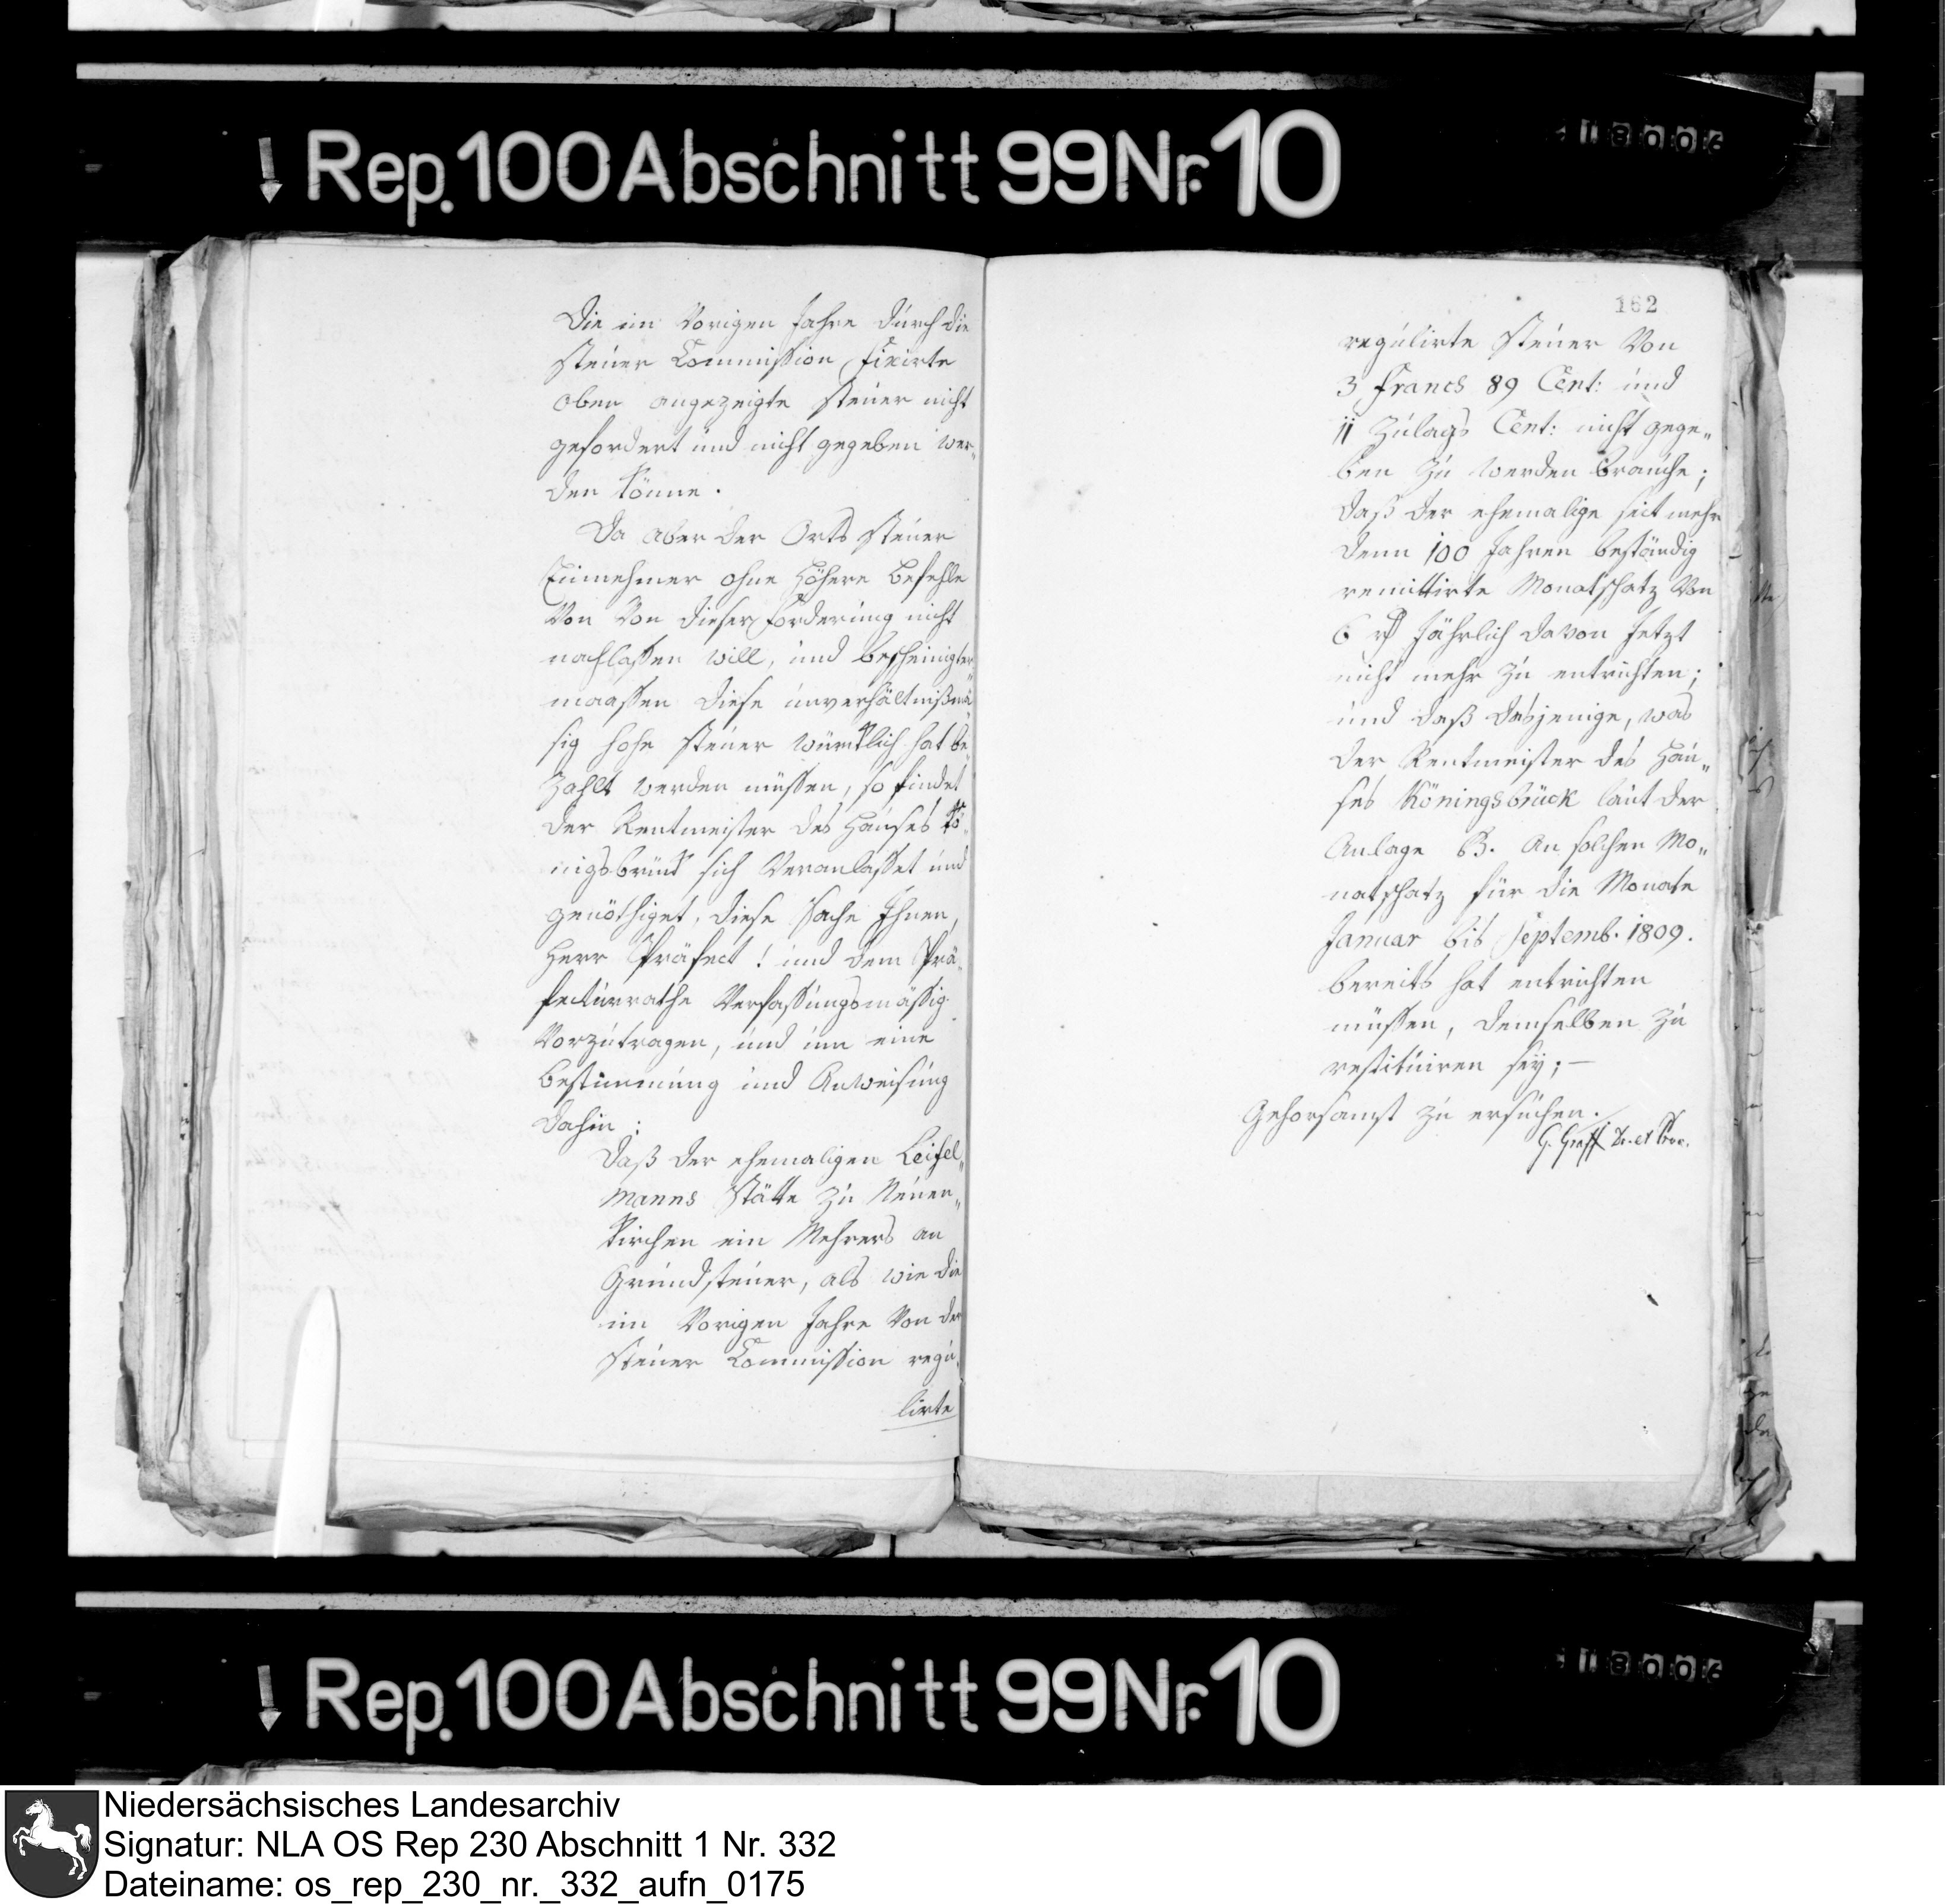 Rep. 100 Abschnitt 99 Nr. 10
18006
die im vorigen Jahre durch die
Steuer Commission fixirte
oben angezeigte Steuer nicht
gefordert und nicht gegeben wer„
den könne.
Da aber der Orts Steuer
Einnehmer ohne höhere Befehle
von von dieser Forderung nicht
nachlassen will, und bescheinigter„
maassen diese unverhältnißmä„
sig hohe Steuer würklich hat be„
zahlt werden müssen, so findet
der Rentmeister des Hauses Kö„
nigsbrück sich veranlasset und
genöthiget, diese Sache Ihnen,
Herr Präfect! und dem Prä„
fecturrathe verfassungsmässig
vorzutragen, und um eine
Bestimmung und Anweisung
dahin:
daß der ehemaligen Leifel„
manns Stätte zu Neuen„
kirchen ein Mehrers an
Grundsteuer, als wie die
im vorigen Jahre von der
Steuer Commission regu„
lirte
162
regulirte Steuer von
3 Francs 89 Cent: und
11 Zulags Cent: nicht gege„
ben zu werden brauche;
daß der ehemalige seit mehr
denn 100 Jahren beständig
remittirte Monatschatz von
6 rt jährlich davon jetzt
nicht mehr zu entrichten;
und daß dasjenige, was
der Rentmeister des Hau„
ses Köningsbrück laut der
Anlage B. an solchen Mo„
natschatz für die Monate
Januar bis Septemb. 1809.
bereits hat entrichten
müssen, demselben zu
restituiren sey; —
Gehorsamst zu ersuchen.
G. Graff
Rep. 100 Abschnitt 99 Nr. 10
18006
Niedersächsisches Landesarchiv
Signatur: NLA OS Rep 230 Abschnitt 1 Nr. 332
Dateiname: os_rep_230_nr._332_aufn_0175